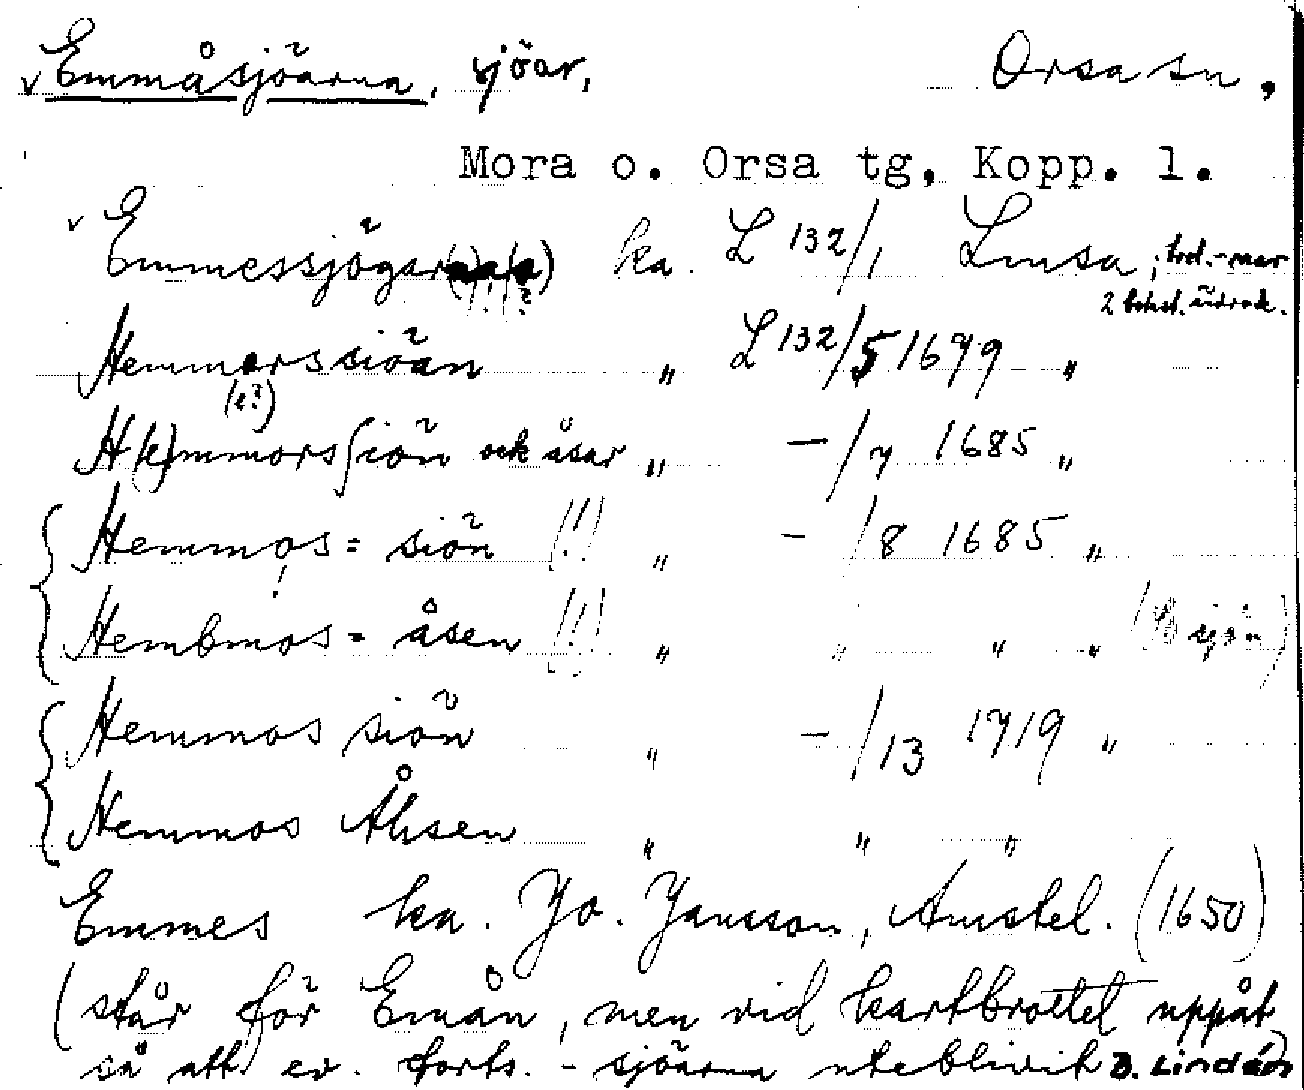 Emmåsjöarna, sjöar, Orsa sn,
Mora o. Orsa tg, Kopp. l.
Emmessjögar ka. L 132/1 Lmsa;
2 
Hemmerssiöan " L 132/5 1679 "
(e?)
H(e)mmorssiön och åsar " - /7 1685 "
Hemmos = siön (!) " - /8 1685 "
!
Hembmos = åsen (!) " " " " sjön)
Hemmos siön " - /13 1719 "
Hemmos Åhsen " " "
Emmes ka. Jo. Jansson, Amstel. (1650)
(står för Emån, men vid kartbrottet uppåt
så att ev. forts. - sjöarna uteblivit) B. Lindén